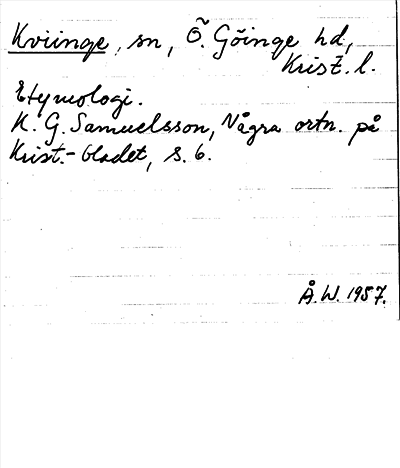 Kviinge, sn, Ö. Göinge hd,
Krist. l.
Etymologi.
K. G. Samuelsson, Några ortn. på
Krist.-bladet, s. 6.
Å.W. 1957.